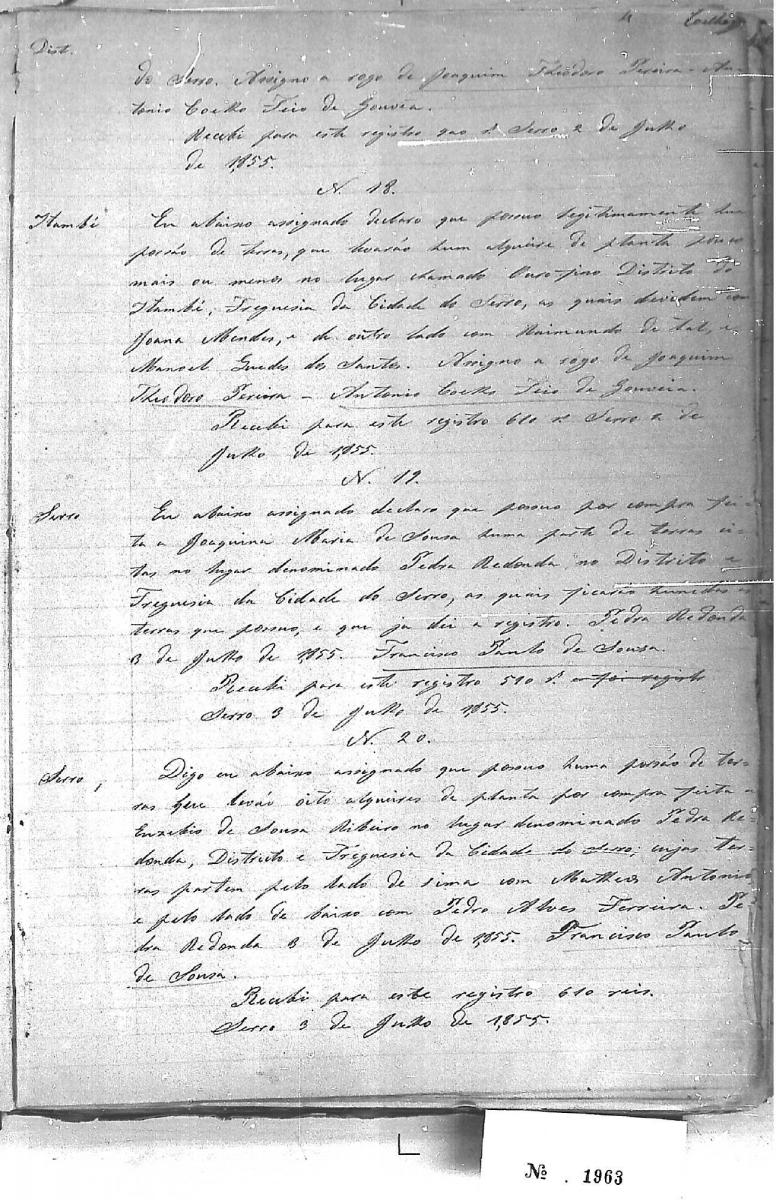 4 Coelho
Dist.
do Serro. Assigno a rogo de Joaquim Theodoro Pereira - An-
tonio Coelho Feio de Gouvea.
Recebi para este registro 920 rs. Serro 2 de Julho
de 1,855.
N. 18.
Itambé Eu abaixo assignado declaro que possuo legitimamente hua
porsão de terras, que levarão hum alqueire de planta pouco
mais ou menos no lugar chamado Ouro-fino Districto do
Itambé, Freguesia da Cidade do Serro, as quais devidem com
Joana Mendes, e de outro lado com Raimundo de tal, e
Manoel Guedes dos Santos. Assigno a rogo de Joaquim
Theodoro Pereira - Antonio Coelho Feio de Gouveia.
Recebi para este registro 610 rs. Serro 2 de
Julho de 1,855.
N. 19.
Serro Eu abaixo assignado declaro que possuo por compra fei-
ta a Joaquina Maria de Sousa huma parte de terras ci-
tas no lugar denominado Pedra Redonda, no Districto e
Freguesia da Cidade do Serro, as quais ficarão hunidas as
terras que possuo, e que ja dei a registro. Pedra Redonda
3 de Julho de 1,855. Francisco Paulo de Sousa.
Recebi para este registro 510 rs. e por registo
Serro 3 de Julho de 1,855.
N. 20.
Serro, Digo eu abaixo assignado que possuo huma porsão de ter-
ras que levão oito alqueires de planta por compra feita a
Euzebio de Sousa Ribeiro no lugar denominado Pedra Re-
donda, Districto e Freguesia da Cidade do Serro; cujas ter-
ras partem pelo lado de sima com Matheos Antonio
e pelo lado de baixo com Pedro Alves Ferreira. Pe-
dra Redonda 3 de Julho de 1,855. Francisco Paulo
de Sousa.
Recebi para este registro 610 reis.
Serro 3 de Julho de 1,855.
No. 1963